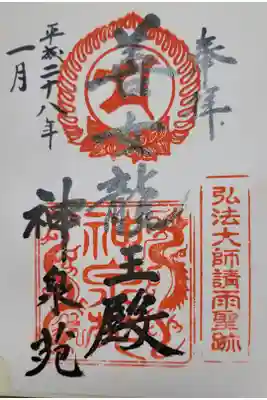 奉拝
弘法大師請雨聖跡
善女龍王殿
平成二十八年
一月
神泉苑